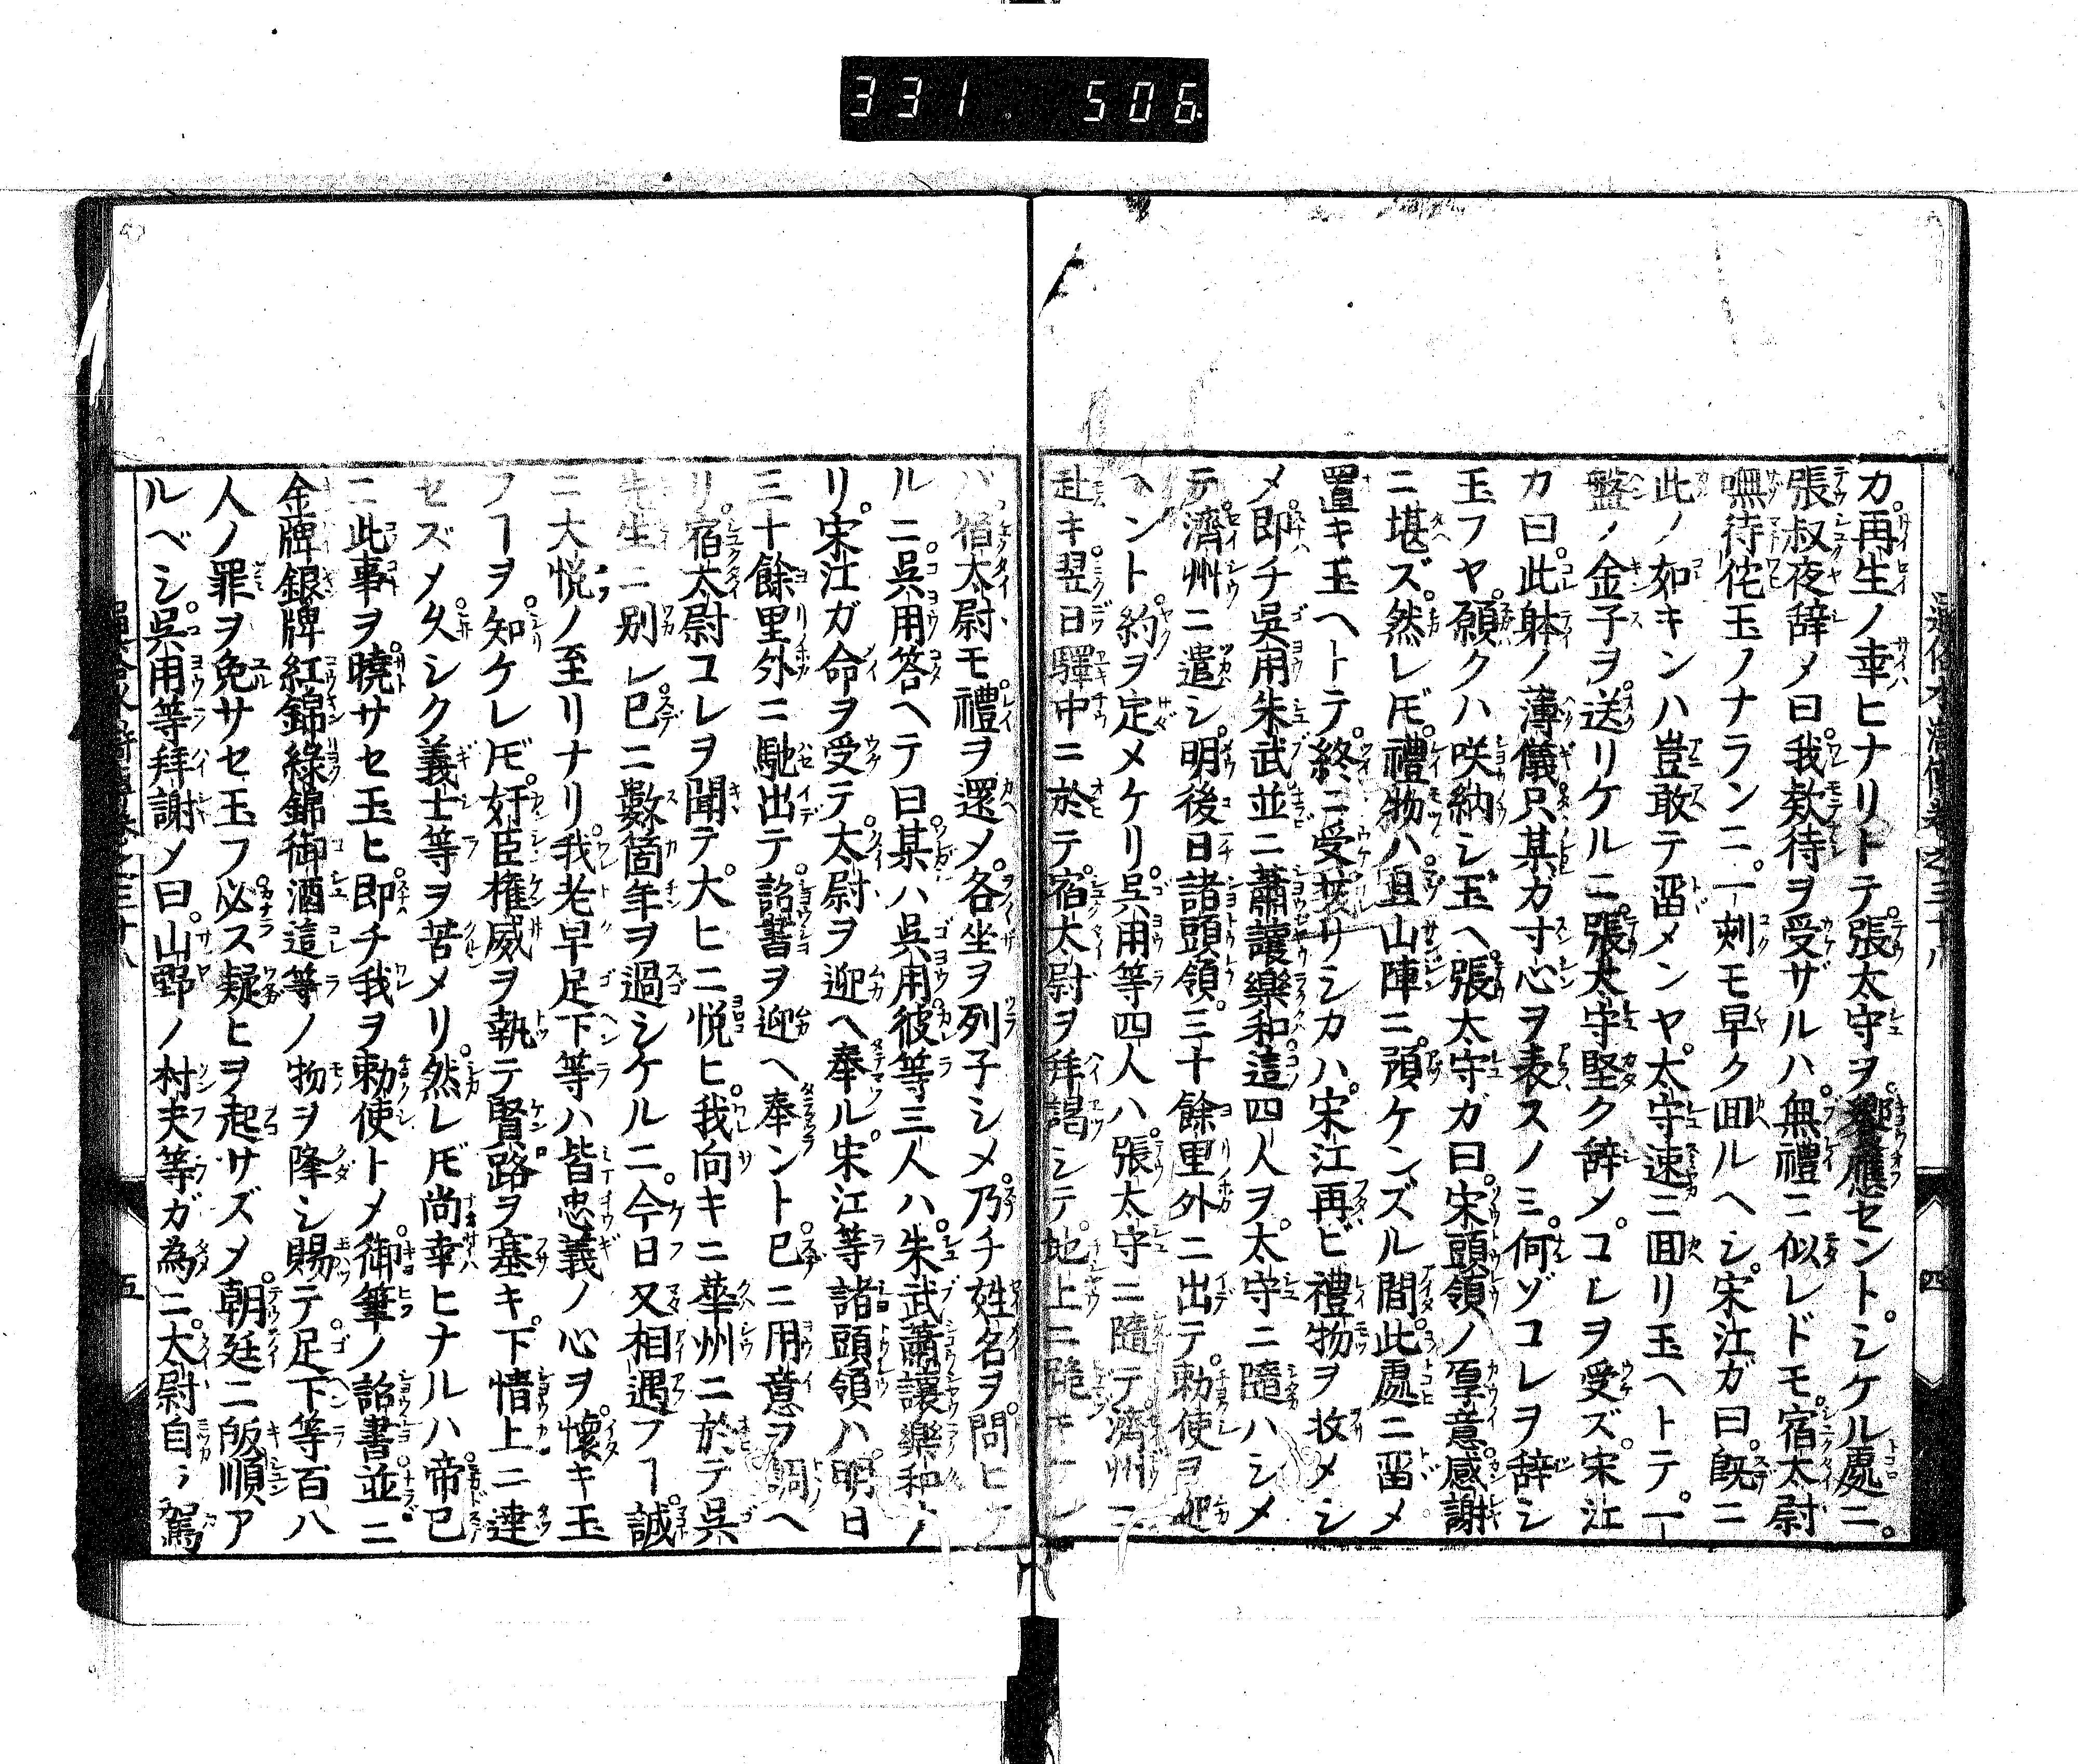 331 506
通俗水滸傳卷之三十八 四
カ。再生ノ幸ヒナリトテ。張太守ヲ。饗應セント。シケル處ニ。
張叔夜辞メ曰。我欵待ヲ受ザルハ。無禮ニ似レドモ。宿太尉
嘸待侘玉ノナランニ。一刻モ早ク囬ルヘシ。宋江ガ曰。既ニ
此ノ如キンハ豈敢テ畱メンヤ。太守速ニ囬リ玉ヘトテ。一
盤ノ金子ヲ送リケルニ。張太守堅ク辞メ。コレヲ受ズ。宋江
カ曰。此躰ノ薄儀。只某カ寸心ヲ表スノミ。何ゾコレヲ辞シ
玉フヤ。願クハ咲納シ玉ヘ。張太守ガ曰。宋頭領ノ厚意感謝
ニ堪ズ。然レ𪜈。禮物ハ。且山陣ニ預ケンズル間。此處ニ畱メ
置キ玉ヘトテ。終ニ受  サリシカハ。宋江再ビ禮物ヲ收メシ
メ。即チ吳用朱武並ニ蕭讓樂和。這四人ヲ。太守ニ隨ハシメ
テ。濟州ニ遣シ。明後日諸頭領。三十餘里外ニ出テ。勅使ヲ迎
ヘント。約ヲ定メケリ。吳用等四人ハ。張太守ニ隨テ。濟州ニ
赴キ。翌日驛中ニ於テ。宿太尉ヲ拜謁シテ。地上ニ跪キケレ
ハ。宿太尉モ禮ヲ還メ。各坐ヲ列子シメ。乃チ姓名ヲ。問ヒケ
ルニ。吳用答ヘテ曰。某ハ吳用。彼等三人ハ。朱武蕭讓樂和ノ
リ。宋江ガ命ヲ受テ。太尉ヲ迎ヘ奉ル。宋江等諸頭領ハ。明日
三十餘里外ニ馳出テ。詔書ヲ迎ヘ奉ント。已ニ用意ヲ調ヘ
リ。宿太尉コレヲ聞テ。大ヒニ悦ヒ。我向キニ華州ニ於テ吳
先生ニ別レ。已ニ數箇年ヲ過シケルニ。今日又相遇フヿ。誠
ニ大悦ノ至リナリ。我老早足下等ハ皆忠義ノ心ヲ。懷キ玉
フヿヲ。知ケレ𪜈。奸臣權威ヲ執テ。賢路ヲ塞キ。下情上ニ達
セズメ。久シク義士等ヲ苦メリ。然レ𪜈尚幸ヒナルハ。帝已
ニ此事ヲ。曉サセ玉ヒ。即チ我ヲ勅使トメ。御筆ノ詔書。並ニ
金牌銀牌紅錦綠錦御酒這等ノ物ヲ降シ賜テ。足下等百八
人ノ罪ヲ免サセ玉フ。必ス疑ヒヲ起サズメ。朝廷ニ皈順ア
ルベシ。吳用等拜謝メ曰。山野ノ村夫等ガ為ニ。太尉自ラ駕
五